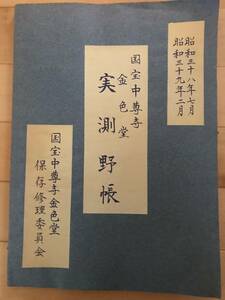 昭和三十八年七月
昭和三十九年二月
国宝中尊寺
金色堂
実測野帳
国宝中尊寺金色堂
保存修理委員会